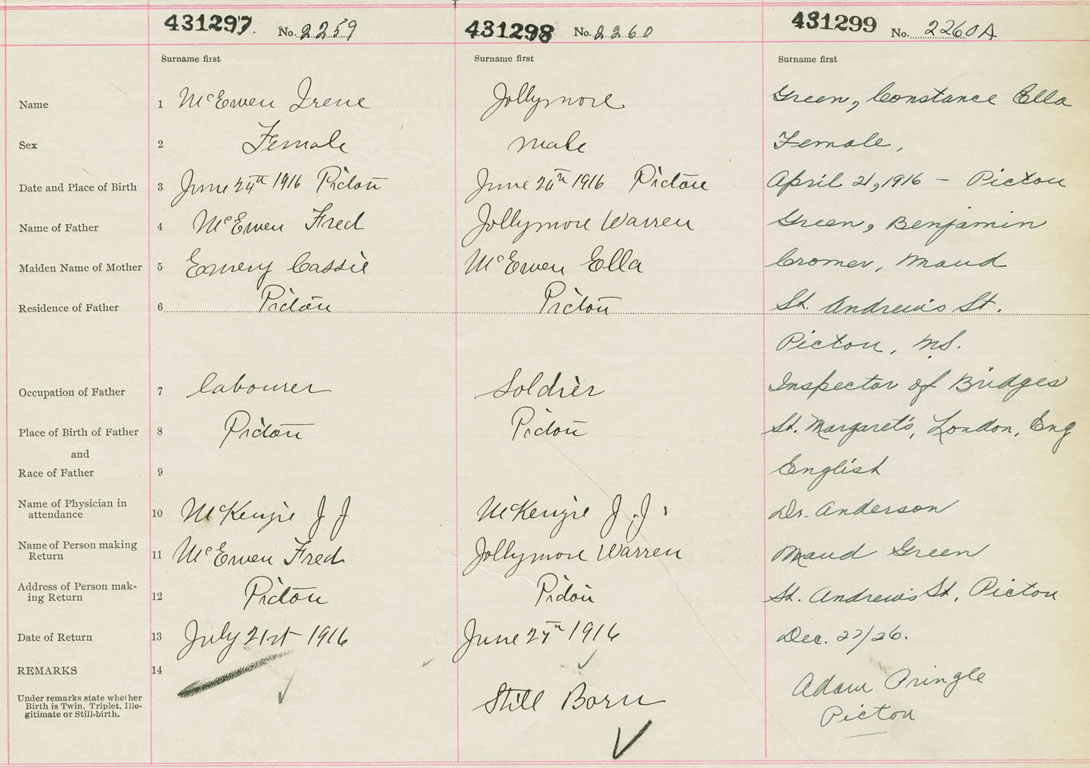 431297. No. 2259 431298 No. 2260 431299 No. 2260A
Surname first Surname first Surname first
Name 1 McEwen Irene Jollymore Green, Constance Ella
Sex 2 Female male Female,
Date and Place of Birth 3 June 24th 1916 Pictou June 26th 1916 Pictou April 21, 1916 - Pictou
Name of Father 4 McEwen Fred Jollymore Warren Green, Benjamin
Maiden Name of Mother 5 Emery Cassie McEwen Ella Cromer, Maud
Residence of Father 6 Pictou Pictou St. Andrew's St.
Pictou, N.S.
Occupation of Father 7 labourer Soldier Inspector of Bridges
Place of Birth of Father 8 Pictou Pictou St. Margaret's, London, Eng
and
Race of Father 9 English
Name of Physician in
attendance 10 McKenzie J J McKenzie J. J. Dr. Anderson
Name of Person making
Return 11 McEwen Fred Jollymore Warren Maud Green
Address of Person mak-
ing Return 12 Pictou Pictou St. Andrew's St, Pictou
Date of Return 13 July 21st 1916 June 27th 1916 Dec. 27/26.
REMARKS 14 Adam Pringle
Under remarks state whether
Birth is Twin, Triplet, Ille-
gitimate or Still-birth. Still Born Pictou